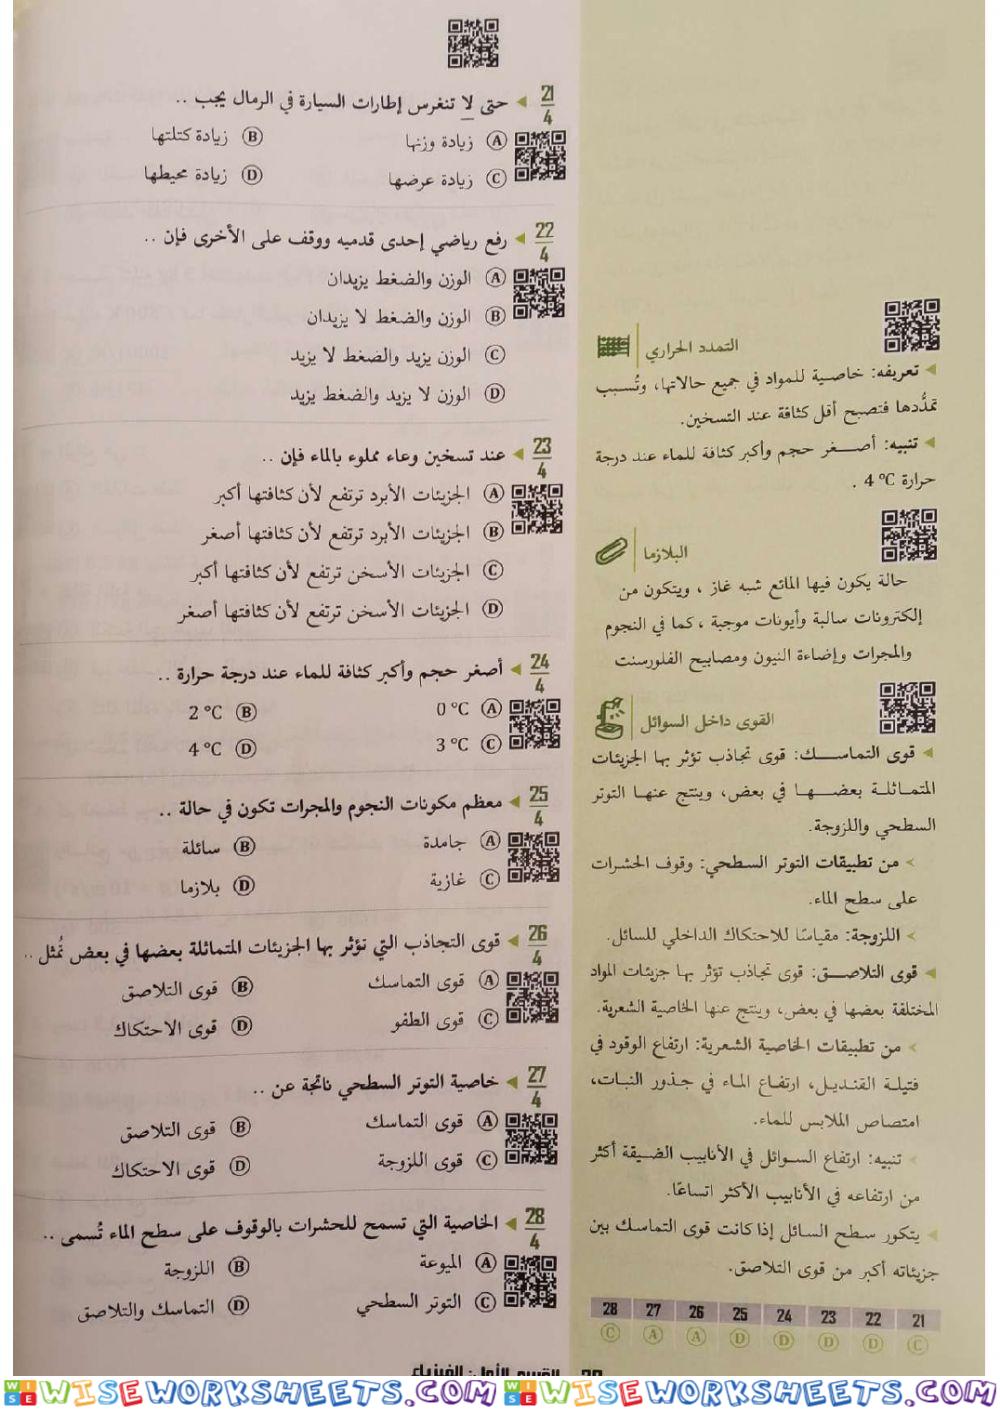 21/4 ◄ حتى لا تنغرس إطارات السيارة في الرمال يجب ..
A زيادة وزنها
B زيادة كتلتها
C زيادة عرضها
D زيادة محيطها
22/4 ◄ رفع رياضي إحدى قدميه ووقف على الأخرى فإن ..
A الوزن والضغط يزيدان
B الوزن والضغط لا يزيدان
C الوزن يزيد والضغط لا يزيد
D الوزن لا يزيد والضغط يزيد
23/4 ◄ عند تسخين وعاء مملوء بالماء فإن ..
A الجزيئات الأبرد ترتفع لأن كثافتها أكبر
B الجزيئات الأبرد ترتفع لأن كثافتها أصغر
C الجزيئات الأسخن ترتفع لأن كثافتها أكبر
D الجزيئات الأسخن ترتفع لأن كثافتها أصغر
24/4 ◄ أصغر حجم وأكبر كثافة للماء عند درجة حرارة ..
A 0 °C
B 2 °C
C 3 °C
D 4 °C
25/4 ◄ معظم مكونات النجوم والمجرات تكون في حالة ..
A جامدة
B سائلة
C غازية
D بلازما
26/4 ◄ قوى التجاذب التي تؤثر بها الجزيئات المتماثلة بعضها في بعض تُمثل ..
A قوى التماسك
B قوى التلاصق
C قوى الطفو
D قوى الاحتكاك
27/4 ◄ خاصية التوتر السطحي ناتجة عن ..
A قوى التماسك
B قوى التلاصق
C قوى اللزوجة
D قوى الاحتكاك
28/4 ◄ الخاصية التي تسمح للحشرات بالوقوف على سطح الماء تُسمى ..
A الميوعة
B اللزوجة
C التوتر السطحي
D التماسك والتلاصق
التمدد الحراري
◄ تعريفه: خاصية للمواد في جميع حالاتها، وتُسبب
تمدُّدها فتصبح أقل كثافة عند التسخين.
◄ تنبيه: أصغر حجم وأكبر كثافة للماء عند درجة
حرارة 4 °C .
البلازما
حالة يكون فيها المائع شبه غاز ، ويتكون من
إلكترونات سالبة وأيونات موجبة ، كما في النجوم
والمجرات وإضاءة النيون ومصابيح الفلورسنت
القوى داخل السوائل
◄ قوى التماسك: قوى تجاذب تؤثر بها الجزيئات
المتماثلة بعضها في بعض، وينتج عنها التوتر
السطحي واللزوجة.
من تطبيقات التوتر السطحي: وقوف الحشرات
على سطح الماء.
اللزوجة: مقياسًا للاحتكاك الداخلي للسائل.
◄ قوى التلاصق: قوى تجاذب تؤثر بها جزيئات المواد
المختلفة بعضها في بعض، وينتج عنها الخاصية الشعرية.
من تطبيقات الخاصية الشعرية: ارتفاع الوقود في
فتيلة القنديل، ارتفاع الماء في جذور النبات،
امتصاص الملابس للماء.
تنبيه: ارتفاع السوائل في الأنابيب الضيقة أكثر
من ارتفاعه في الأنابيب الأكثر اتساعًا.
◄ يتكور سطح السائل إذا كانت قوى التماسك بين
جزيئاته أكبر من قوى التلاصق.
28 27 26 25 24 23 22 21
C A A D D D D C
القسم الأول: الفيزياء
WISEWORKSHEETS.COM WISEWORKSHEETS.COM